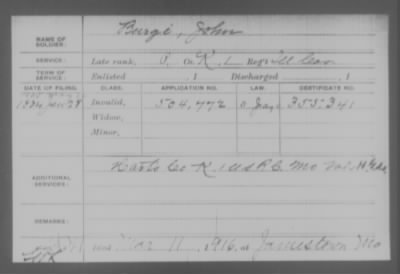 NAME OF SOLDIER: Burgi, John
SERVICE: Late rank, P. Co. K, 1 Reg't Ill Cav
TERM OF SERVICE: Enlisted , 1 Discharged , 1
DATE OF FILING. CLASS. APPLICATION NO. LAW. CERTIFICATE NO.
1884 Jan 28 Invalid, 504,772 355341
Widow,
Minor,
ADDITIONAL SERVICES: Co K 1 U S R C Mo Vol
REMARKS:
Mar 11, 1916, at Jamestown Mo